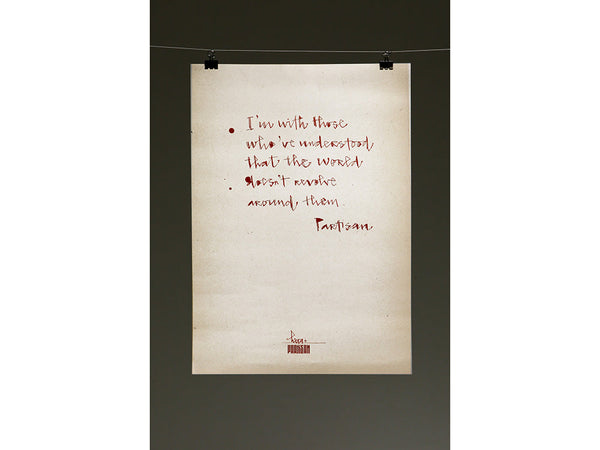 I'm with those
who've understood
that the world
doesn't revolve
around them.
Partisan